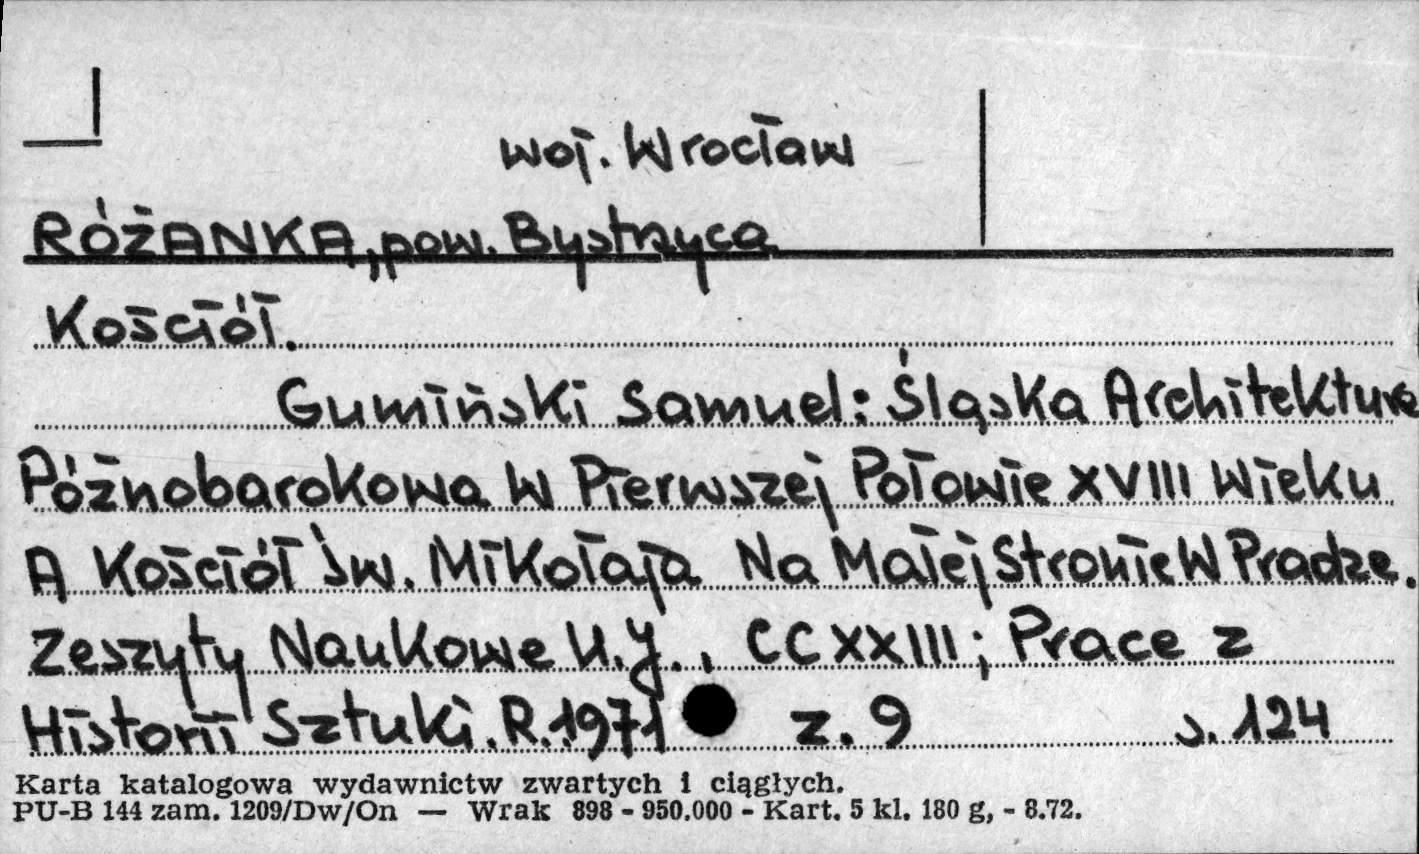 woj. Wrocław
RÓŻANKA, pow. Bystrzyca
Kościół.
Gumiński Samuel: Śląska Architektura
Późnobarokowa W Pierwszej Połowie XVIII Wieku
A Kościół Św. Mikołaja Na Małej Stronie W Pradze.
Zeszyty Naukowe U.J., CCXXIII; Prace z
Historii Sztuki. R.1971 z. 9 s. 124
Karta katalogowa wydawnictw zwartych i ciągłych.
PU-B 144 zam. 1209/Dw/On — Wrak 898 - 950.000 - Kart. 5 kl. 180 g, - 8.72.